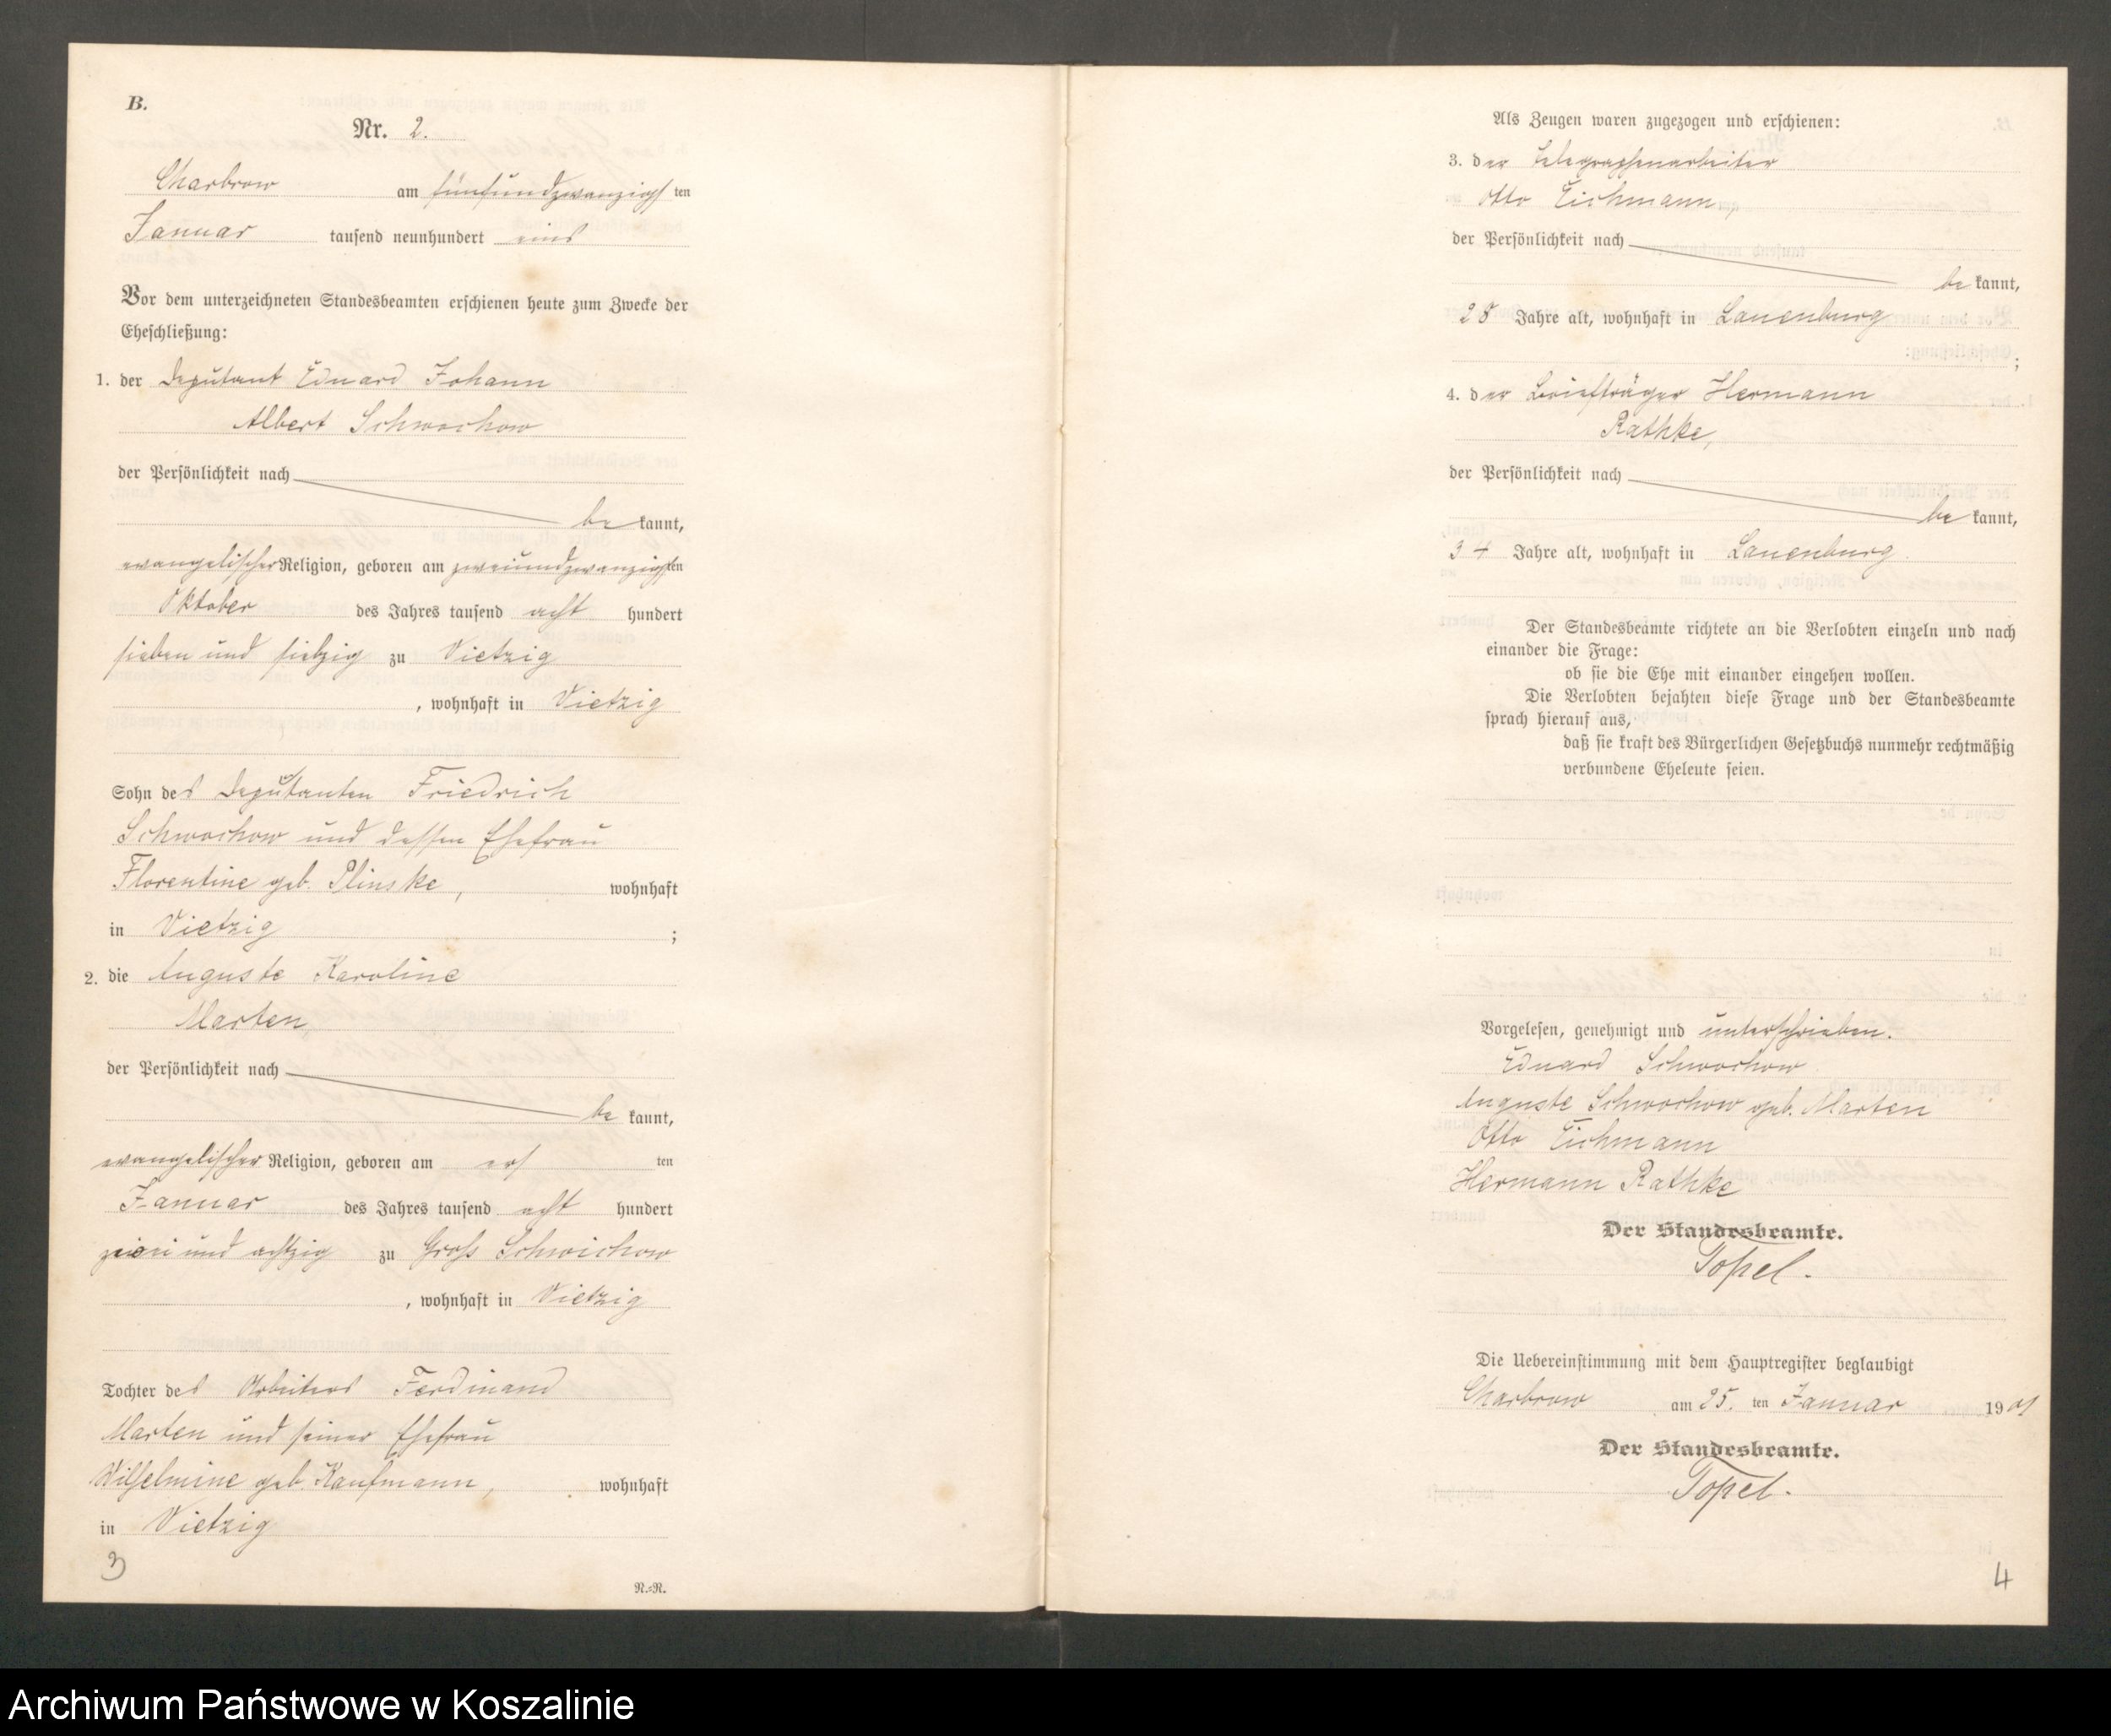 B.
Nr. 2.
Charbrow am fünfundzwanzigsten
Januar tausend neunhundert eins
Vor dem unterzeichneten Standesbeamten erschienen heute zum Zwecke der
Eheschließung:
1. der Deputant Eduard Johann
Albert Schwochow
der Persönlichkeit nach
bekannt,
evangelischer Religion, geboren am zweiundzwanzigsten
Oktober des Jahres tausend acht hundert
sieben und siebzig zu Vietzig
, wohnhaft in Vietzig
Sohn des Deputanten Friedrich
Schwochow und dessen Ehefrau
Florentine geb. Plinske, wohnhaft
in Vietzig ;
2. die Auguste Karoline
Marten,
der Persönlichkeit nach
bekannt,
evangelischer Religion, geboren am ersten
Januar des Jahres tausend acht hundert
und achtzig zu Groß Schwichow
, wohnhaft in Vietzig
Tochter des Arbeiters Ferdinand
Marten und seiner Ehefrau
Wilhelmine geb. Kaufmann, wohnhaft
in Vietzig
3
N.=N.
Als Zeugen waren zugezogen und erschienen:
3. der Telegraphenarbeiter
Otto Eichmann,
der Persönlichkeit nach
bekannt,
28 Jahre alt, wohnhaft in Lauenburg
;
4. der Briefträger Hermann
Rathke,
der Persönlichkeit nach
bekannt,
34 Jahre alt, wohnhaft in Lauenburg.
Der Standesbeamte richtete an die Verlobten einzeln und nach
einander die Frage:
ob sie die Ehe mit einander eingehen wollen.
Die Verlobten bejahten diese Frage und der Standesbeamte
sprach hierauf aus,
daß sie kraft des Bürgerlichen Gesetzbuchs nunmehr rechtmäßig
verbundene Eheleute seien.
Vorgelesen, genehmigt und unterschrieben.
Eduard Schwochow
Auguste Schwochow geb. Marten
Otto Eichmann
Hermann Rathke
Der Standesbeamte.
Topel.
Die Uebereinstimmung mit dem Hauptregister beglaubigt
Charbrow am 25. ten Januar 1901
Der Standesbeamte.
Topel.
4
Archiwum Państwowe w Koszalinie